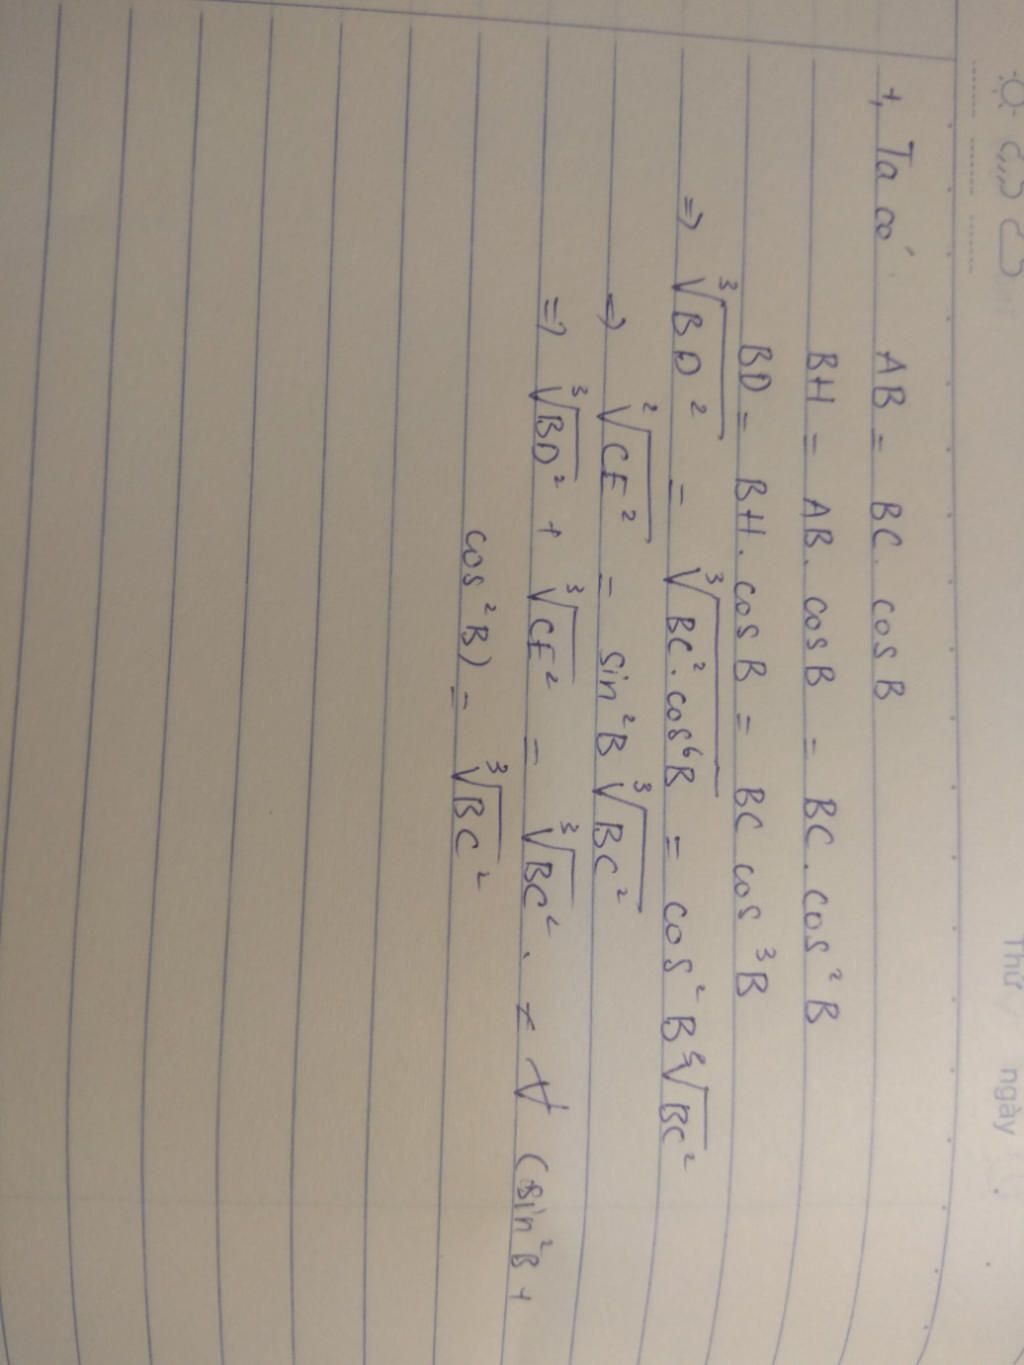 Thứ ngày
+, Ta có AB = BC. cos B
BH = AB. cos B = BC. cos²B
BD = BH. cos B = BC cos³B
=> ∛BD² = ∛BC².cos⁶B = cos²B ∛BC²
=> ²√CE² = sin²B ∛BC²
=> ∛BD² + ∛CE² = ∛BC² . (sin²B +
cos²B) = ∛BC²